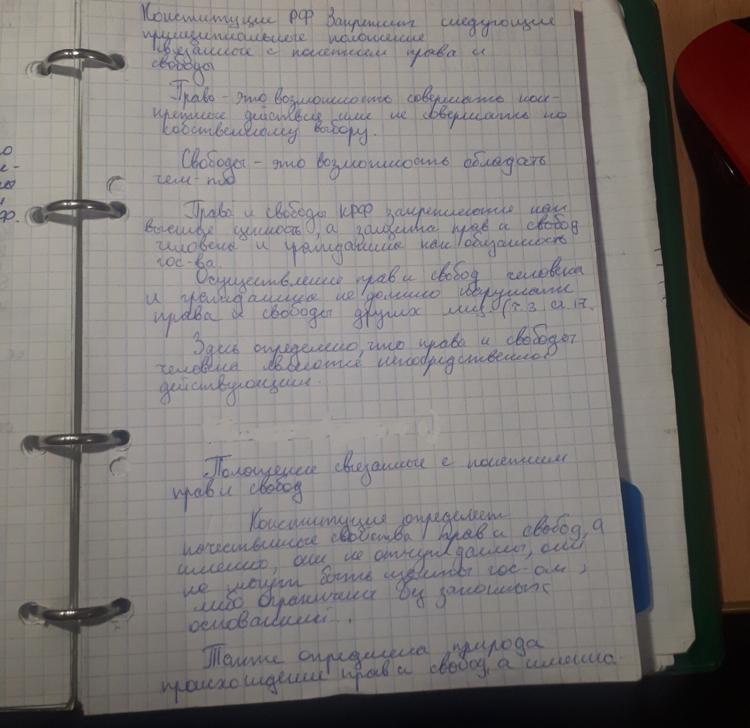 Конституции РФ Закрепил следующие
принципиальные положение
связанное с понятием права и
свободы
Право - это возможность совершать кон-
кретные действия или не совершать по
собственному выбору.
Свободы - это возможность обладать
чем-либо
Права и свободы КРФ закрепляются как
высшие ценность, а защита прав и свобод
человека и гражданина как обязанность
гос-ва.
Осуществление прав и свобод человека
и гражданина не должно нарушать
права и свободы других лиц (ч.3 ст.17.
Здесь определено, что права и свободы
человека являются непосредственно
действующими.
Положение связанные с понятием
прав и свобод
Конституция определяет
качественные свойства прав и свобод, а
именно, они не отчуждаемы, они
не могут быть изъяты гос-ом,
либо ограничены без законных
оснований.
Также определена природа
происхождение прав и свобод, а именно
о
е-
ы
и
Ф.